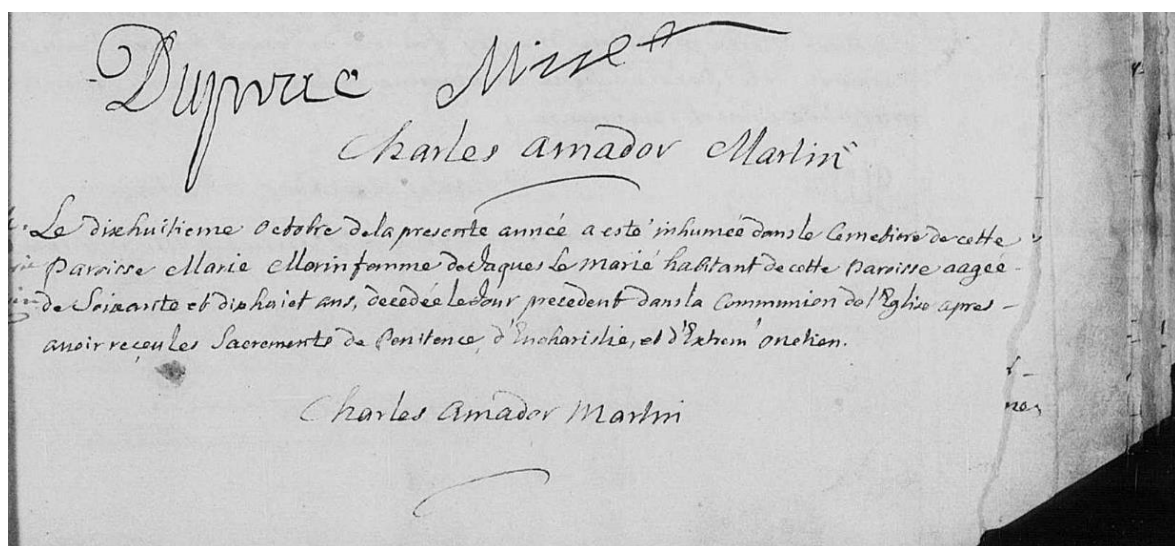 Duprac Minet
Charles Amador Martin
Le dixhuitieme Octobre de la presente anneé a esté inhumeé dans le Cemetiere de cette
Paroisse Marie Morin femme de Jaques Le marié habitant de cette Paroisse aageé
de Soixante et dixhuict ans, decedeé le Jour precedent dans la Communion de l'Eglise apres
avoir reçeu les Sacrements de Penitence, d'Eucharistie, et d'Extrem' onction.
Charles Amador Martin